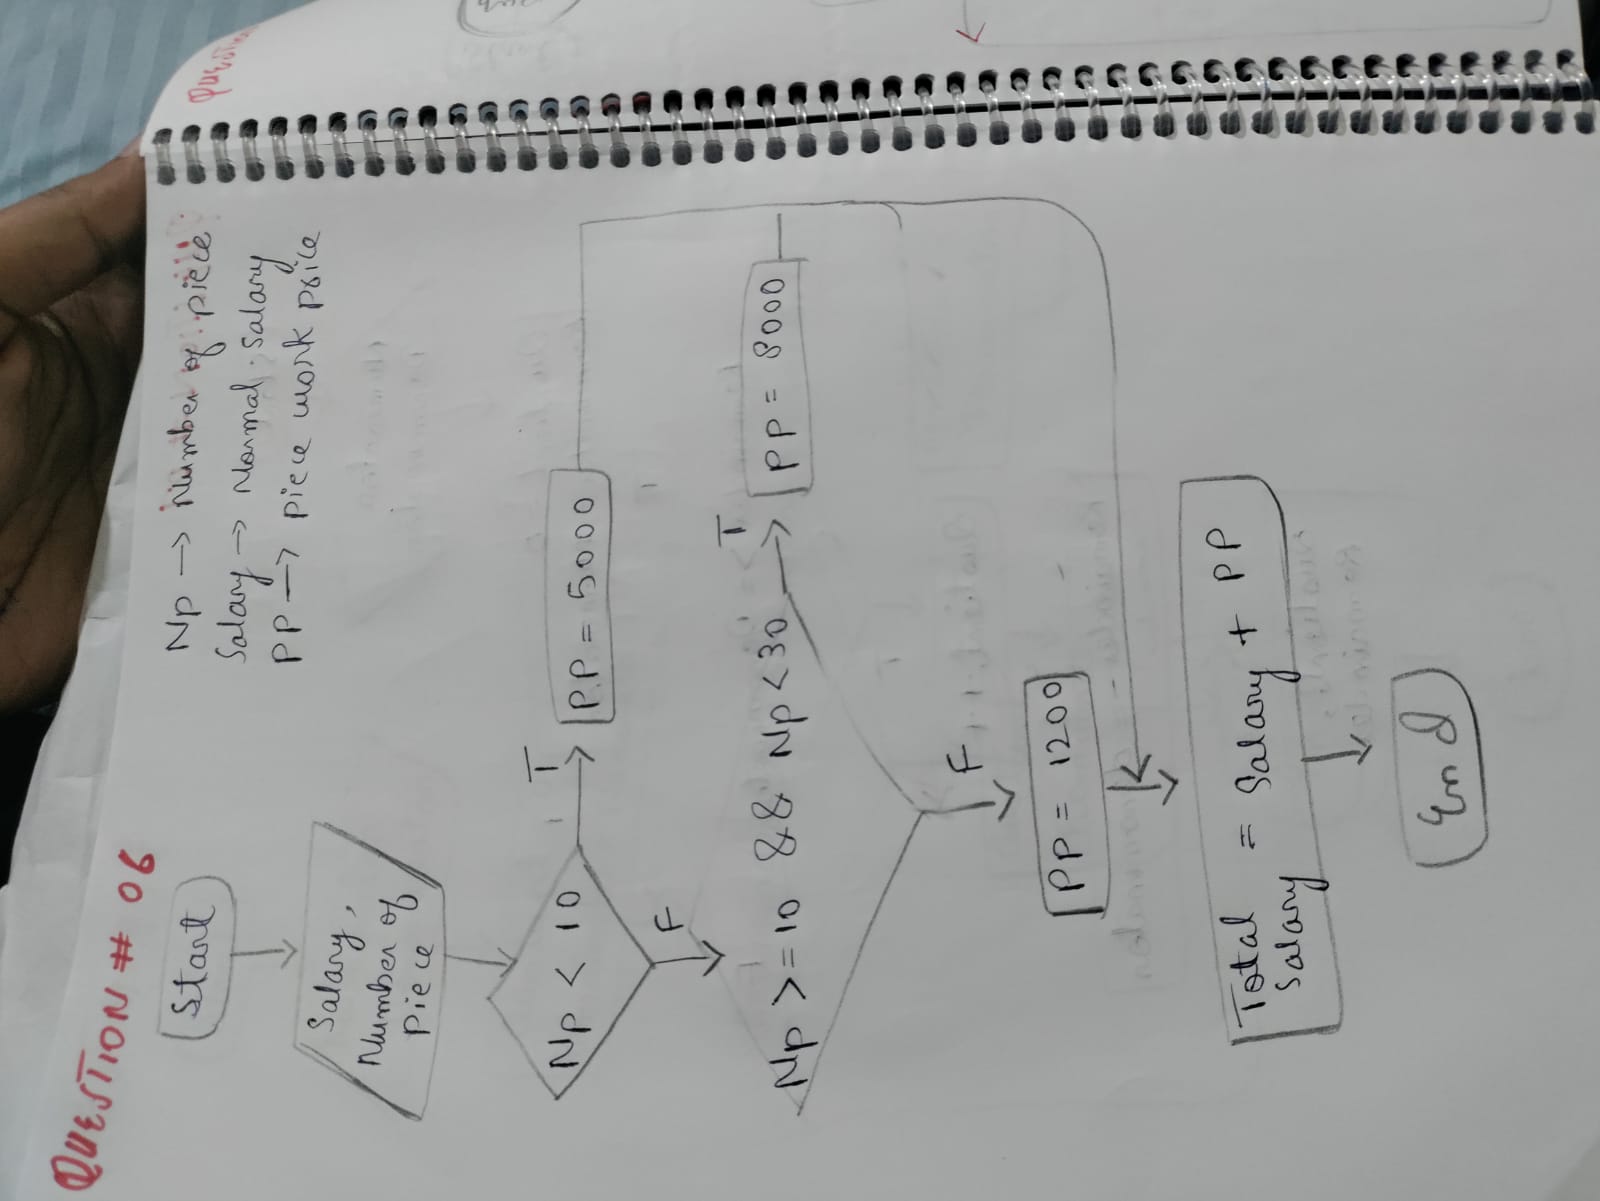 QUESTION # 06
Np → Number of piece
Salary → Normal Salary
PP → piece work price
Start
Salary,
Number of
piece
Np < 10
T
P.P = 5000
F
Np >= 10 && Np < 30
T
PP = 8000
F
PP = 1200
Total = Salary + PP
Salary
End